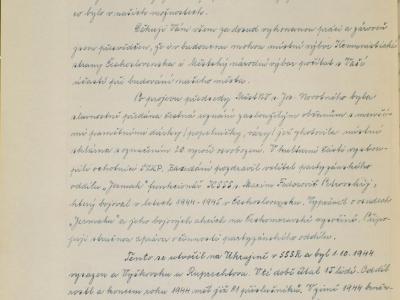 co bylo v našich možnostech.
Děkuji Vám všem za dosud vykonanou práci a zároveň
jsem přesvědčen, že i v budoucnu mohou místní výbor Komunistické
strany Československa i Městský národní výbor počítat s Vaší
účastí při budování našeho města.
Po projevu předsedy MěstNV s. Jos. Novotného byla
slavnostně předána čestná uznání zasloužilým občanům s menšími
památečními dárky / popelníčky, vázy / jež zhotovila místní
sklárna s označením 20. výročí osvobození. V kulturní části vystou-
pili ochotníci SZKP. Zasedání pozdravil velitel partyzánského
oddílu „Jermak" funkcionář KSSS s. Maxim Fedorovič Petrovskij,
který bojoval v letech 1944 - 1945 v Československu. Vyprávěl o oddílu
„Jermaku" a jeho bojových akcích na Českomoravské vysočině. Připo-
juji stručnou zprávu o činnosti partyzánského oddílu.
Tento se utvořil na Ukrajině v SSSR a byl 1. 10. 1944
vysazen u Vyžkovka u Ruprechtova. V té době čítal 15 lidí. Oddíl
rostl a koncem roku 1944 měl již 81 příslušníků. V zimě 1944